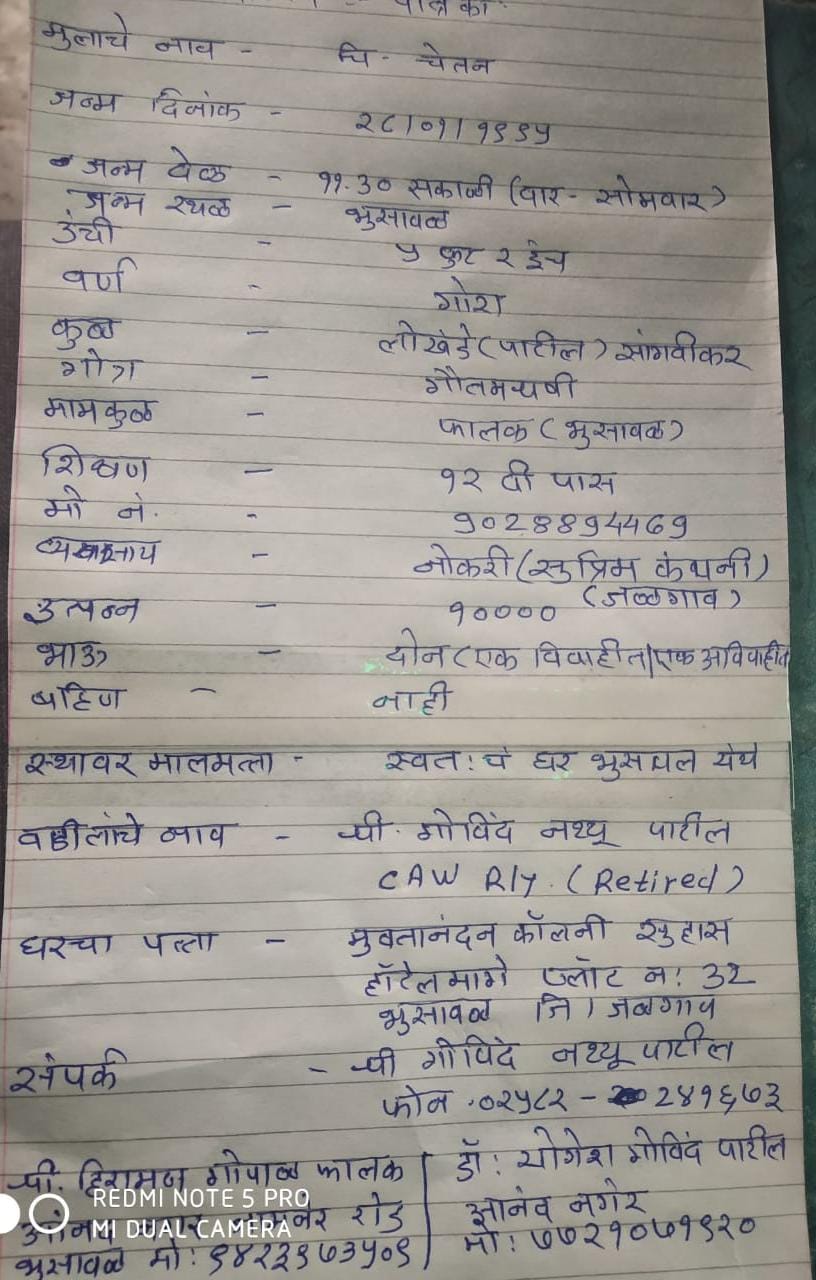 मुलाचे नाव - चि. चेतन
जन्म दिनांक - २८।०१।१९९५
जन्म वेळ - ११.३० सकाळी (वार - सोमवार)
जन्म स्थळ - भुसावळ
उंची - ५ फुट २ इंच
वर्ण - गोरा
कुळ - लोखंडे (पाटील) सांगवीकर
गोत्र - गौतमऋषी
मामकुळ - फालक (भुसावळ)
शिक्षण - १२ वी पास
मो नं. - 9028894469
व्यवसाय - नोकरी (सुप्रिम कंपनी)
(जळगाव)
उत्पन्न - १००००
भाऊ - दोन (एक विवाहीत/एक अविवाहीत
बहिण - नाही
स्थावर मालमत्ता - स्वतः चं घर भुसावल येथे
वडीलांचे नाव - श्री. गोविंद नथ्थू पाटील
CAW Rly. (Retired)
घरचा पत्ता - मुक्तानंदन कॉलनी सुहास
हॉटेल मागे प्लॉट नः 32
भुसावळ जि। जळगाव
संपर्क - श्री गोविंद नथ्थू पाटील
फोन .०२५८२ - २४१६७३
श्री. हिरामन गोपाळ फालक
रोड
भुसावळ मोः ९४२३९७३५०९
डॉः योगेश गोविंद पाटील
आनंद नगर
मोः ७७२१०७१९२०
REDMI NOTE 5 PRO
MI DUAL CAMERA